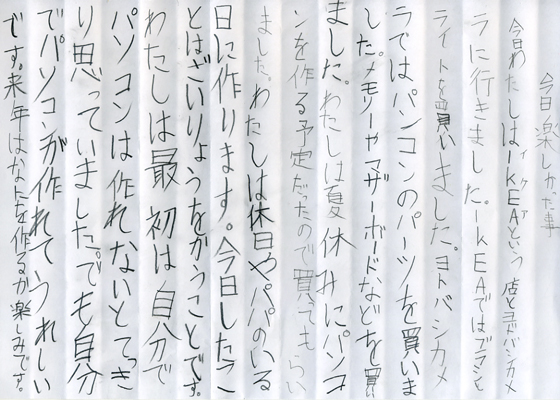 今日楽しかた事
今日わたしはIKEAイケアという店とヨドバシカメ
ラに行きました。IKEAではブランと
ライトを買いました。ヨドバシカメ
ラではパンコンのパーツを買いま
した。メモリーやマザーボードなどを買い
ました。わたしは夏休みにパソコ
ンを作る予定だったので買ってもらい
ました。わたしは休日やパパのいる
日に作ります。今日したこ
とはざいりょうをかうことです。
わたしは最初は自分で
パソコンは作れないとてっき
り思っていました。でも自分
でパソコンが作れてうれしい
です。来年はなにを作るか楽しみです。